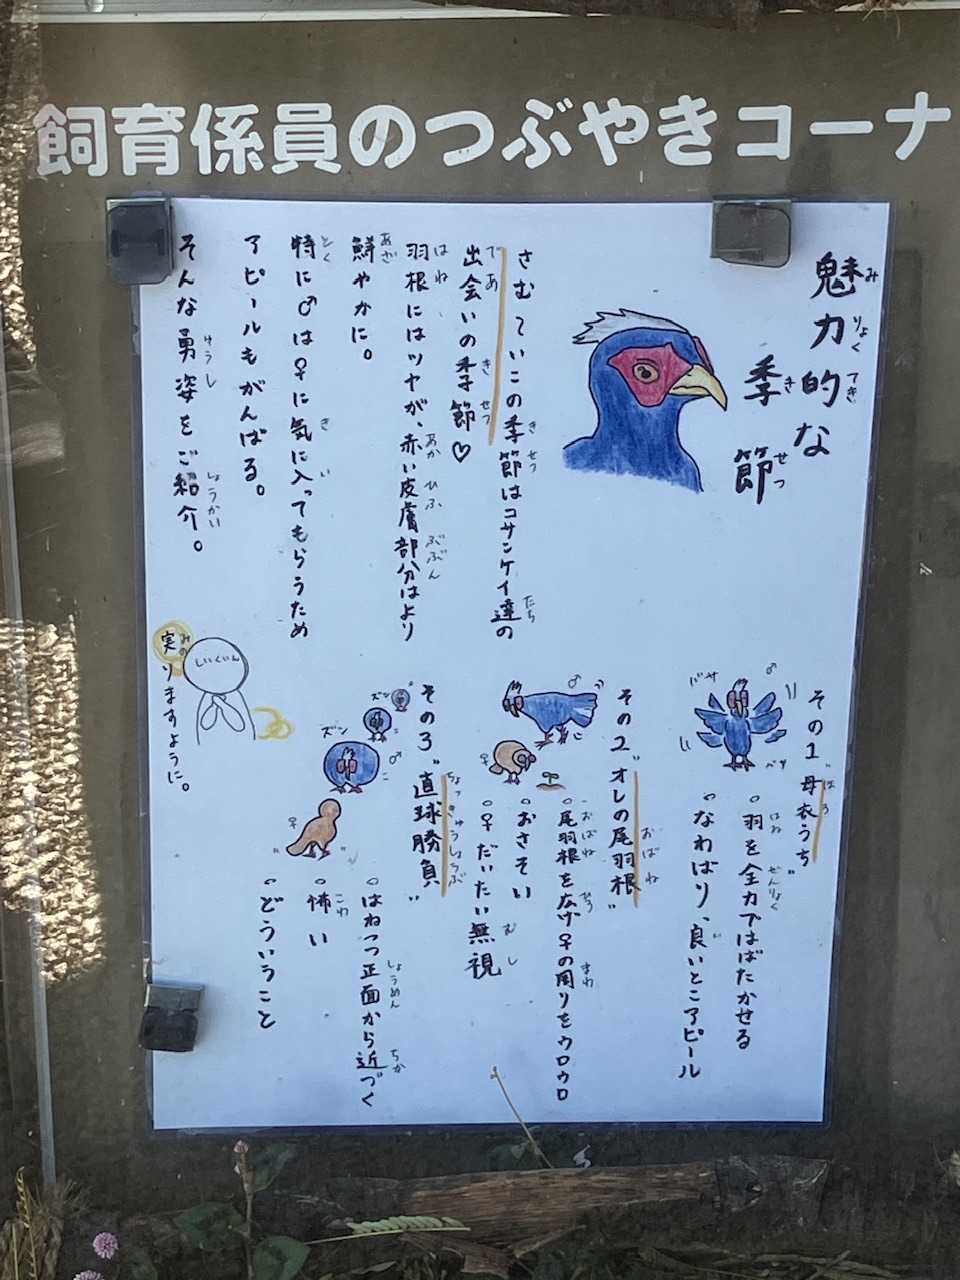 飼育係員のつぶやきコーナ
魅力的な
季節
さむ〜いこの季節はコサンケイ達の
出会いの季節♡
羽根にはツヤが、赤い皮膚部分はより
鮮やかに。
特に♂は♀に気に入ってもらうため
アピールもがんばる。
そんな勇姿をご紹介。
その1 "母衣うち"
♂
バサ
バサ
・羽を全力ではばたかせる
・なわばり、良いとこアピール
その2 "オレの尾羽根"
♂
♀
・尾羽根を広げ♀の周りをウロウロ
・おさそい
・♀だいたい無視
その3 "直球勝負"
ズン
ズン
♂
♀
・はねつつ正面から近づく
・怖い
・どういうこと
しいくいん
実りますように。